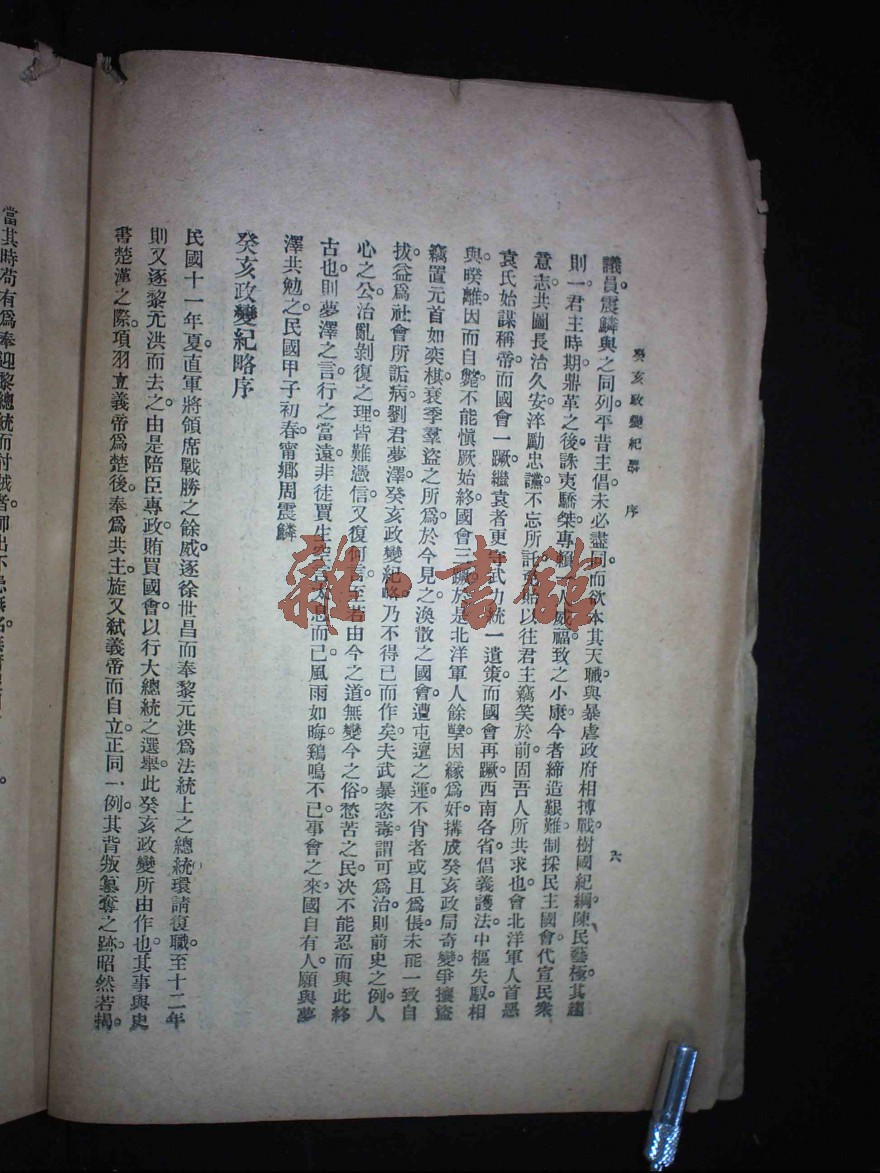 癸亥政變紀畧　序　六
議員。震鱗與之同列。平昔主倡。未必盡同。而欲本其天職。與暴虐政府相搏戰。樹國紀綱。陳民藝極。其趨
則一。君主時期。鼎革之後。誅夷驕桀。專賴一人威福。致之小康。今者締造艱難。制採民主。國會代宣民衆
意志。共圖長治久安。淬勵忠讜。不忘所託。充貼以往。君主竊笑於前。固吾人所共求也。會北洋軍人首惡
袁氏。始謀稱帝。而國會一蹶。繼袁者更守武力統一遺策。而國會再蹶。西南各省倡義護法。中樞失馭。相
與暌離。因而自斃。不能愼厥始終。國會三蹶。於是北洋軍人餘孽因緣爲奸。搆成癸亥政局奇變。爭攘盜
竊。置元首如奕棋。衰季羣盜之所爲。於今見之。渙散之國會。遭屯邅之運。不肖者或且爲倀。未能一致自
拔。益爲社會所詬病。劉君夢澤癸亥政變紀略。乃不得已而作矣。夫武暴恣毒。謂可爲治。則前史之例。人
心之公。治亂剝復之理。皆難憑信。又復何言。至若由今之道。無變今之俗。愁苦之民。決不能忍而與此終
古也。則夢澤之言。行之當遠。非徒賈生空言太息而已。風雨如晦。鷄鳴不已。事會之來。國自有人。願與夢
澤共勉之。民國甲子初春甯鄉周震鱗
癸亥政變紀略序
民國十一年夏。直軍將領席戰勝之餘威。逐徐世昌而奉黎元洪爲法統上之總統。環請復職。至十二年
則又逐黎元洪而去之。由是陪臣專政。賄買國會。以行大總統之選舉。此癸亥政變所由作也。其事與史
書楚漢之際。項羽立義帝爲楚後。奉爲共主。旋又弒義帝而自立。正同一例。其背叛簒奪之跡。昭然若揭。
當其時苟有爲奉迎黎總統而討賊者
雜·書館